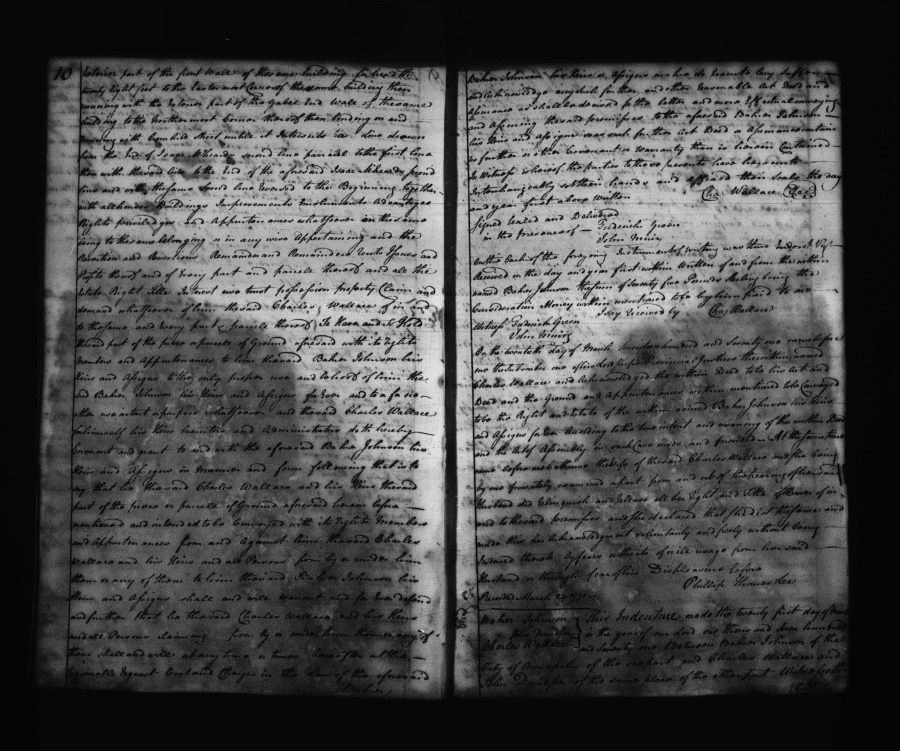 10
Interior part of the front Wall of the same building for
Twenty Eight feet to the Eastermost Corner of the same building then
running with the Interior part of the Gabel End Wall of the same
building to the Northermost Corner thereof then
with Cornhill Street untill it Intersects
the End of Isaac McHards second line parralel to the first line
then with the said line to the End of the aforesaid Isaac McHards second
line and with the same second line reversed to the Beginning together
with all houses Buildings Improvements Inclosures Advantages
Rights priviledges and Appurtenances whatsoever on the same
being to the same belonging or in any wise Appertaining and the
Reversion and Reversions Remainder and Remainders Rents Issues and
Profits thereof and of Every part and parcele thereof and all the
Estate Right Title Interest use trust possession property Claim and
demand whatsoever of him the said Charles Wallace of in and
to the same and every part & parcele thereof To Have and To Hold
the said part of the piece or parcele of Ground aforesaid with its Rights
Members and Appurtenances to him the said Baker Johnson his
Heirs and Assigns to the only proper use and behoof of him the
said Baker Johnson his Heirs and Assigns for Ever and to & for no
other use intent or purpose whatsoever and the said Charles Wallace
for himself his Heirs Executors and Administrators doth hereby
Covenant and grant to and with the aforesaid Baker Johnson his
Heirs and Assigns in Manner and form following that is to
say that he the said Charles Wallace and his Heirs the said
part of the piece or parcele of Ground aforesaid herein before
mentioned and intended to be Conveyed with its Rights Members
and Appurtenances from and Against him the said Charles
Wallace and his Heirs and all Persons from by or under him
them or any of them to him the said Baker Johnson his
Heirs and Assigns shall and will Warrant and for Ever defend
and further that he the said Charles Wallace and his Heirs
and all Persons claiming from by or under him them or any of
them shall and will at any time or times hereafter at the
reasonable Request Cost and Charges in the Law of the aforesaid
Baker
Baker Johnson his Heirs or Assigns make do Execute
and Acknowledge any such further and other reasonable Act Deed and
Assurance as shall be advised for the better and more Effectual conveying
and Assuring the said premisses to the aforesaid Baker Johnson
his Heirs and Assigns was such further Act Deed or Assurance contain
no further or other Covenant or Warranty than is herein Contained
In Witness whereof the parties to these presents have hereunto
Interchangeably set their hands and affixed their Seals the day
and year first above written Cha. Wallace (Seal)
Signed Sealed and Delivered
in the presence of — Frederick Green
John
On the back of the foregoing Instrument of Writing was thus Indorsed Viz.
Received on the day and year first within Written of and from the within
named Baker Johnson the sum of Twenty five Pounds Sterling being the
Consideration Money within mentioned to be by him paid to me
Witness Frederick Green } Say received by Cha. Wallace
John
On the twentieth day of March Seventeen hundred and Seventy one came before
me the Subscriber one of his Lordships Provincial Justices the within named
Charles Wallace and Acknowledged the within Deed to be his Act and
Deed and the Ground and Appurtenances within mentioned to be Conveyed
to be the Right and Estate of the within named Baker Johnson his Heirs
and Assigns for Ever According to the true intent and meaning of the within Deed
and the Act of Assembly in such case made and provided. At the same time
came before me Catherine the Wife of the said Charles Wallace and she being
by me privately examined apart from and out of the hearing of her said
Husband did relinquish and release all her right and Title of Dower of in
and to the said premisses and she declared that she did the same and
made this her Acknowledgment voluntarily and freely without being
induced thereto by fears or threats of ill usage from her said
Husband or through fear of his Displeasure before
Phillip Thomas Lee
Recorded March 1771
Baker Johnson } This Indenture made the twenty first day of March
in the year of our Lord one thousand Seven hundred
Charles Wallace } and Seventy one Between Baker Johnson of the
City of Annapolis of the one part and Charles Wallace and
John of the same place of the other part Witnesseth